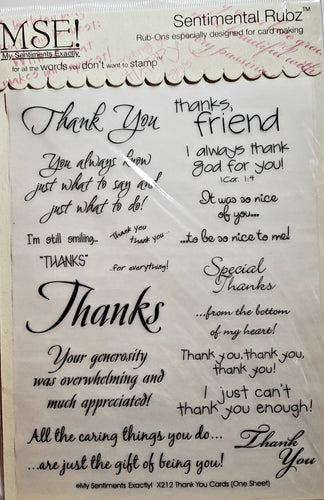 MSE!
My Sentiments Exactly.
for all the words you don't want to stamp™
Sentimental Rubz™
Rub-Ons especially designed for card making
Thank You
thanks,
friend
You always know
just what to say and
just what to do!
I always thank
god for you!
1 Cor. 1:4
It was so nice
of you...
...to be so nice to me!
I'm still smiling...
Thank you
thank you...
"THANKS"
...for everything!
Special
Thanks
Thanks
...from the bottom
of my heart!
Your generosity
was overwhelming and
much appreciated!
Thank you, thank you,
thank you!
I just can't
thank you enough!
All the caring things you do...
...are just the gift of being you!
Thank
You
©My Sentiments Exactly! X212 Thank You Cards (One Sheet)